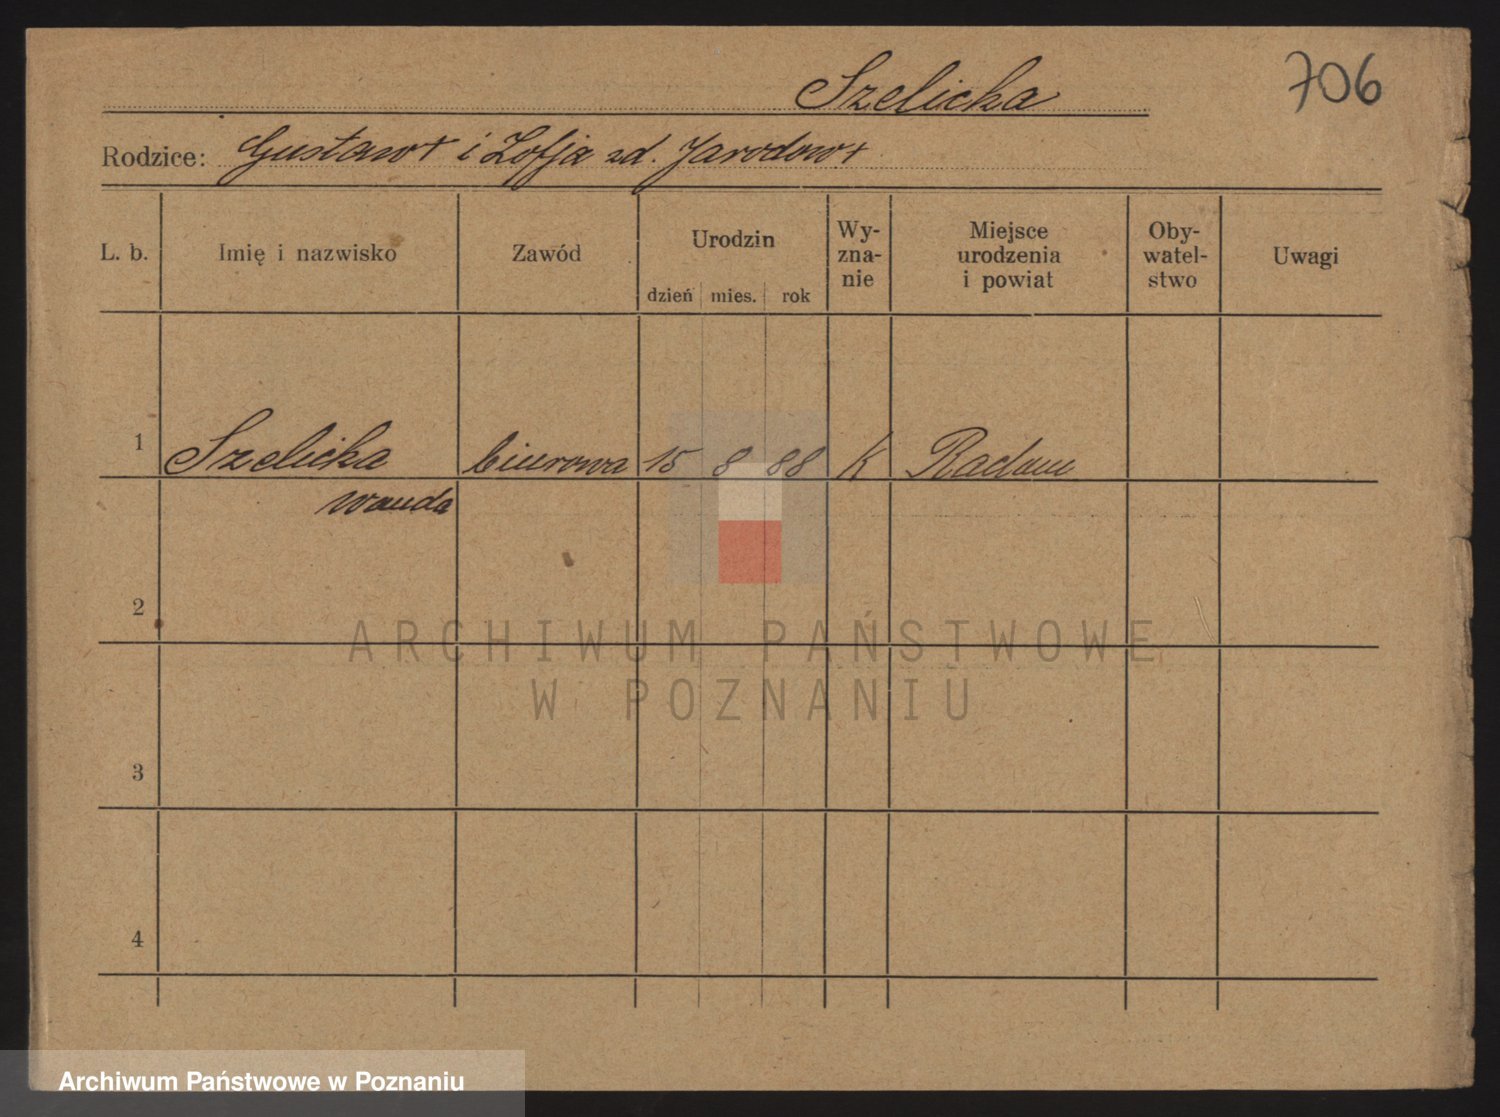 Szelicka
706
Rodzice: Gustaw + i Zofja zd. Jarodow +
L. b. Imię i nazwisko Zawód Urodzin dzień mies. rok Wy-zna-nie Miejsce urodzenia i powiat Oby-watel-stwo Uwagi
1 Szelicka biurowa 15 8 88 k Radom
Wanda
2
ARCHIWUM PAŃSTWOWE
W POZNANIU
3
4
Archiwum Państwowe w Poznaniu